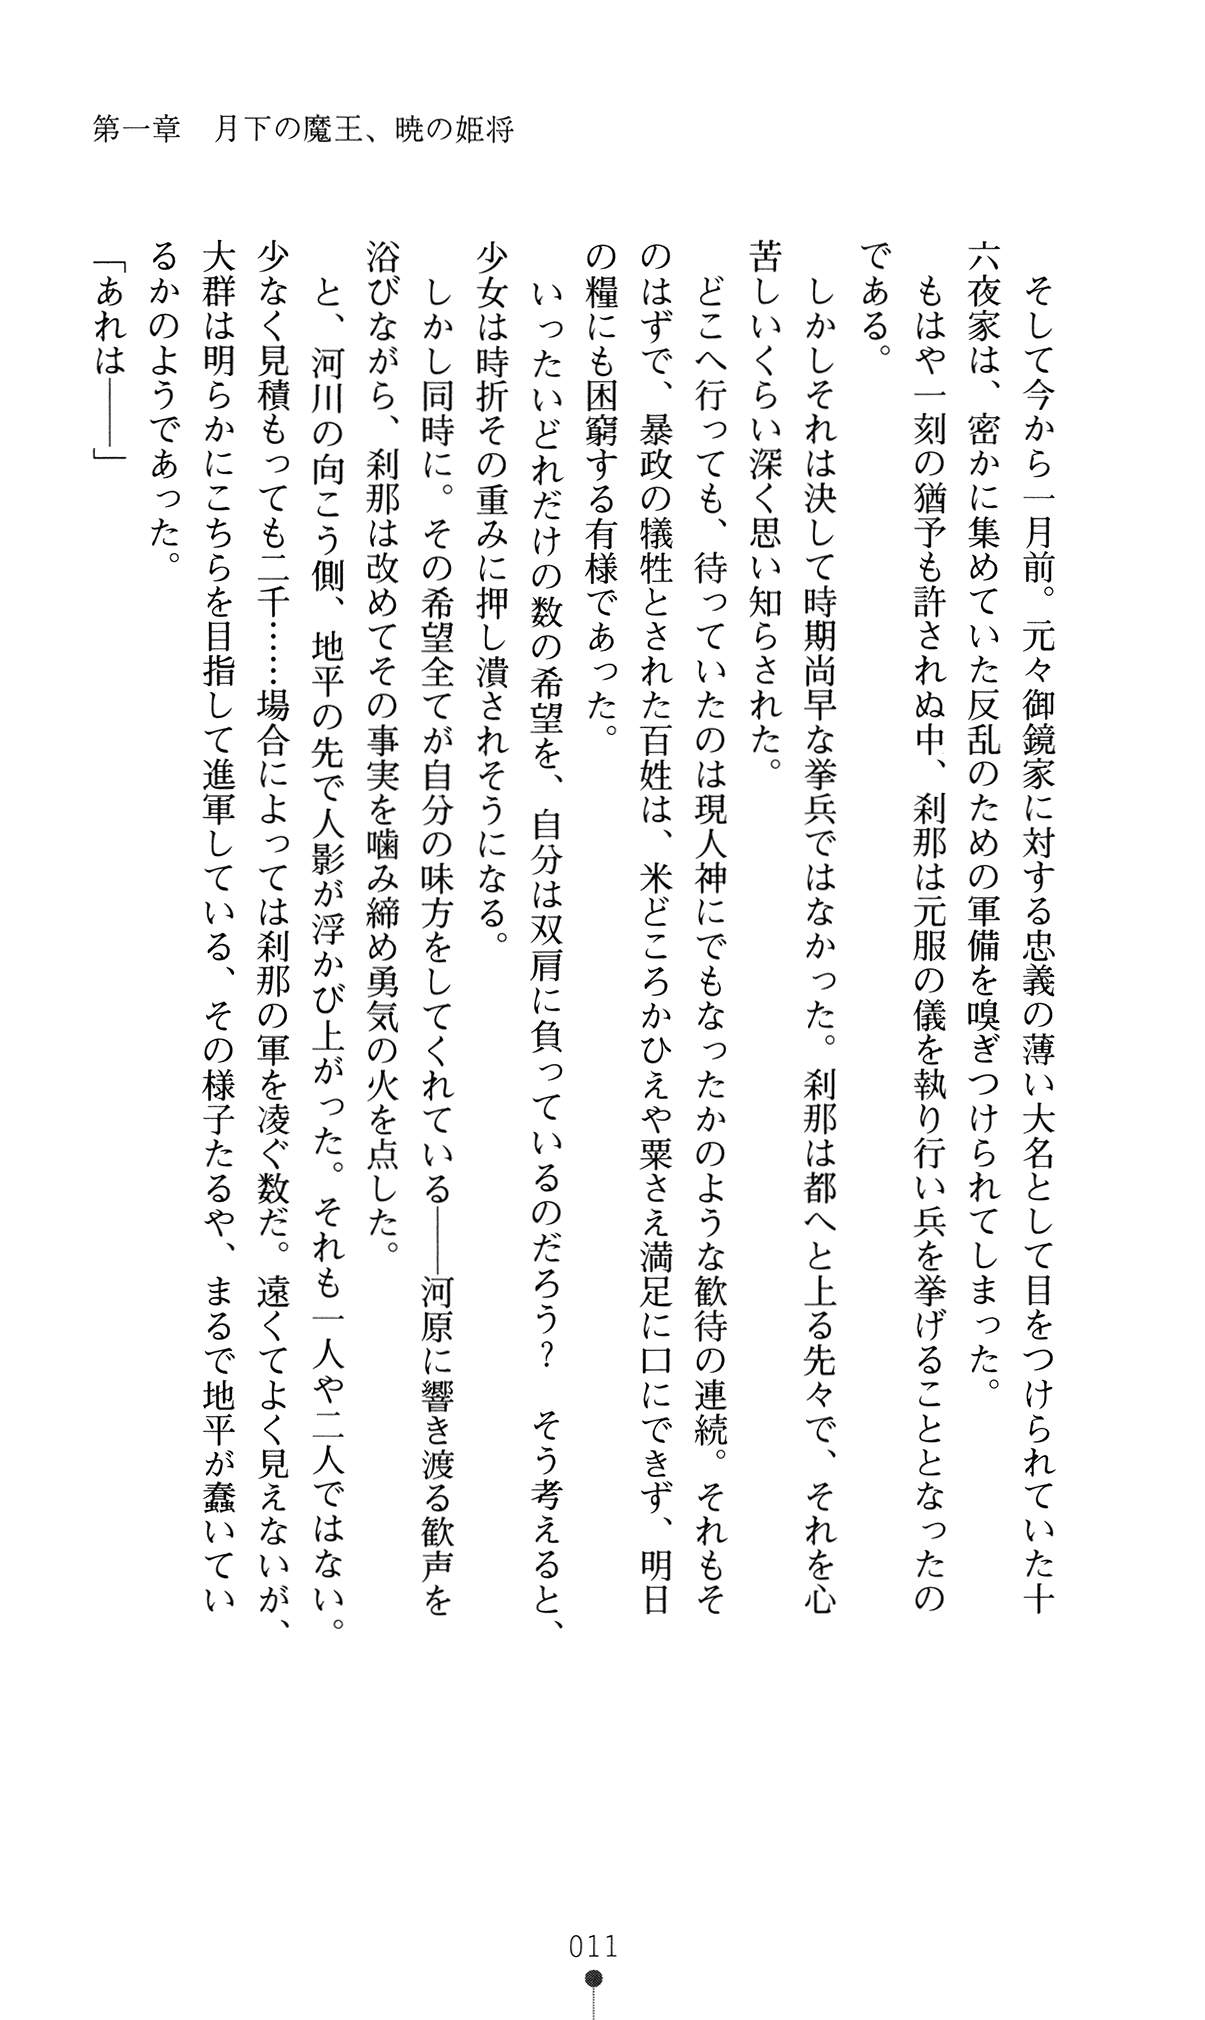 第一章　月下の魔王、暁の姫将
　そして今から一月前。元々御鏡家に対する忠義の薄い大名として目をつけられていた十
六夜家は、密かに集めていた反乱のための軍備を嗅ぎつけられてしまった。
　もはや一刻の猶予も許されぬ中、刹那は元服の儀を執り行い兵を挙げることとなったの
である。
　しかしそれは決して時期尚早な挙兵ではなかった。刹那は都へと上る先々で、それを心
苦しいくらい深く思い知らされた。
　どこへ行っても、待っていたのは現人神にでもなったかのような歓待の連続。それもそ
のはずで、暴政の犠牲とされた百姓は、米どころかひえや粟さえ満足に口にできず、明日
の糧にも困窮する有様であった。
　いったいどれだけの数の希望を、自分は双肩に負っているのだろう？　そう考えると、
少女は時折その重みに押し潰されそうになる。
　しかし同時に。その希望全てが自分の味方をしてくれている――河原に響き渡る歓声を
浴びながら、刹那は改めてその事実を噛み締め勇気の火を点した。
　と、河川の向こう側、地平の先で人影が浮かび上がった。それも一人や二人ではない。
少なく見積もっても二千……場合によっては刹那の軍を凌ぐ数だ。遠くてよく見えないが、
大群は明らかにこちらを目指して進軍している、その様子たるや、まるで地平が蠢いてい
るかのようであった。
「あれは――」
011